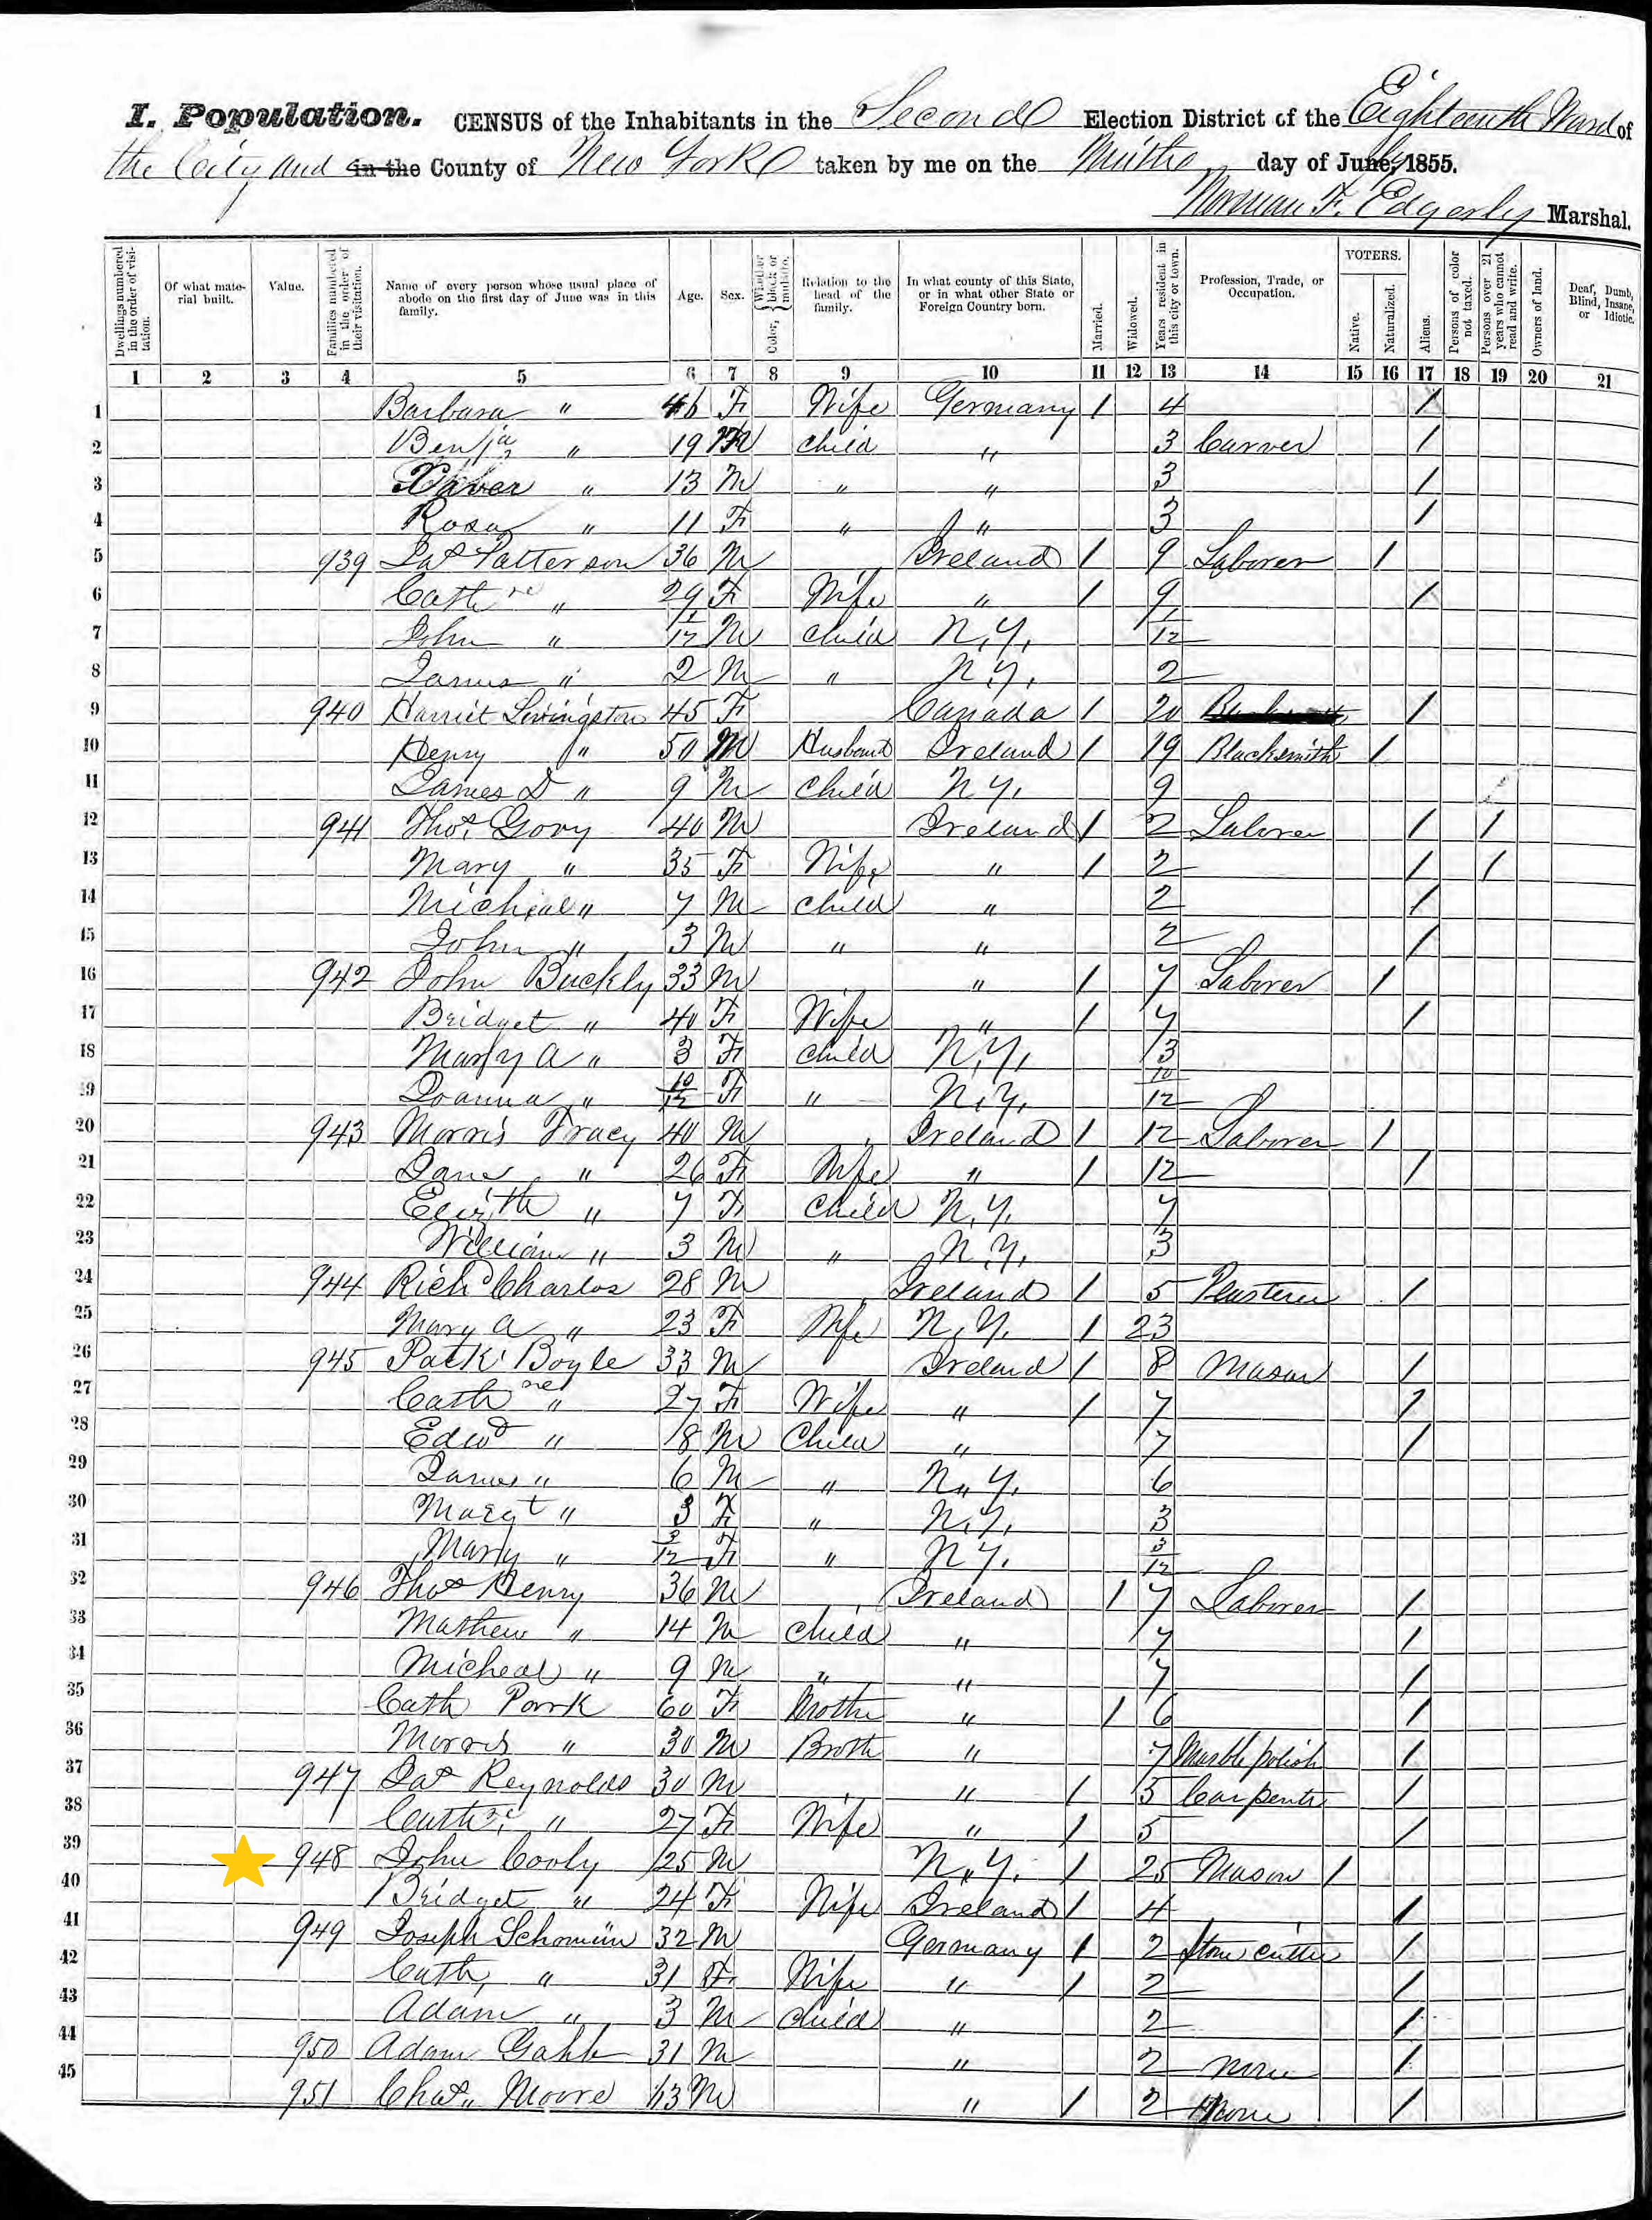 I. Population. CENSUS of the Inhabitants in the Second Election District of the Eighteenth Ward of
the City and in the County of New York taken by me on the day of June, 1855.
Norman F. Edgerly Marshal.
Dwellings numbered in the order of visitation.
Of what material built.
Value.
Families numbered in the order of their visitation.
Name of every person whose usual place of abode on the first day of June was in this family.
Age.
Sex.
Color, Whether black or mulatto.
Relation to the head of the family.
In what county of this State, or in what other State or Foreign Country born.
Married.
Widowed.
Years resident in this city or town.
Profession, Trade, or Occupation.
VOTERS.
Native.
Naturalized.
Aliens.
Persons of color not taxed.
Persons over 21 years who cannot read and write.
Owners of land.
Deaf, Dumb, Blind, Insane, or Idiotic.
1 2 3 4 5 6 7 8 9 10 11 12 13 14 15 16 17 18 19 20 21
1 Barbara " 46 F Wife Germany 1 4 1
2 Benja " 19 M Child " 3 Carver 1
3 " 13 M " " 3 1
4 Rosa " 11 F " " 3 1
5 939 Jas Patterson 36 M Ireland 1 9 Laborer 1
6 Cathre " 29 F Wife " 1 9 1
7 John " 1/12 M Child N.Y. 1/12
8 James " 2 M " N.Y. 2
9 940 Harriet Livingston 45 F Canada 1 20 1
10 Henry " 50 M Husband Ireland 1 19 Blacksmith 1
11 James D " 9 M Child N.Y. 9
12 941 Thos Govy 40 M Ireland 1 2 Laborer 1 1
13 Mary " 35 F Wife " 1 2 1 1
14 Micheal " 7 M Child " 2 1
15 John " 3 M " " 2 1
16 942 John Buckly 33 M " 1 7 Laborer 1
17 Bridget " 40 F Wife " 1 7 1
18 Mary A " 3 F Child N.Y. 3
19 Joanna " 10/12 F " N.Y. 10/12
20 943 Morris Tracy 40 M Ireland 1 12 Laborer 1
21 Jane " 26 F Wife " 1 12 1
22 Elizth " 7 F Child N.Y. 7
23 William " 3 M " N.Y. 3
24 944 Richd Charles 28 M Ireland 1 5 Plasterer 1
25 Mary A " 23 F Wife N.Y. 1 23
26 945 Patk Boyle 33 M Ireland 1 8 Mason 1
27 Cathne " 27 F Wife " 1 7 1
28 Edwd " 8 M Child " 7 1
29 James " 6 M " N.Y. 6
30 Margt " 3 F " N.Y. 3
31 Mary " 3/12 F " N.Y. 3/12
32 946 Thos Henry 36 M Ireland 1 7 Laborer 1
33 Mathew " 14 M Child " 7 1
34 Micheal " 9 M " " 7 1
35 Cath Park 60 F Mother " 1 6 1
36 Morris " 30 M Broth " 7 Marble polish 1
37 947 Jas Reynolds 30 M " 1 5 Carpenter 1
38 Cathre " 27 F Wife " 1 5 1
39 948 John Cooly 25 M N.Y. 1 25 Mason 1
40 Bridget " 24 F Wife Ireland 1 4 1
41 949 Joseph 32 M Germany 1 2 Stone cutter 1
42 Cath, " 31 F Wife " 1 2 1
43 Adam " 3 M Child " 2 1
44 950 Adam 31 M " 2 None 1
45 951 Chas Moore M " 1 2 None 1